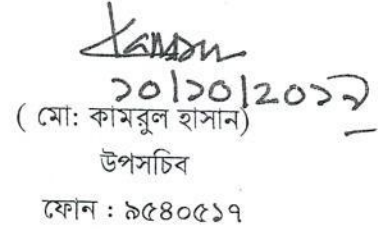 ১০/১০/২০১৯
( মো: কামরুল হাসান)
উপসচিব
ফোন : ৯৫৪০৫১৭